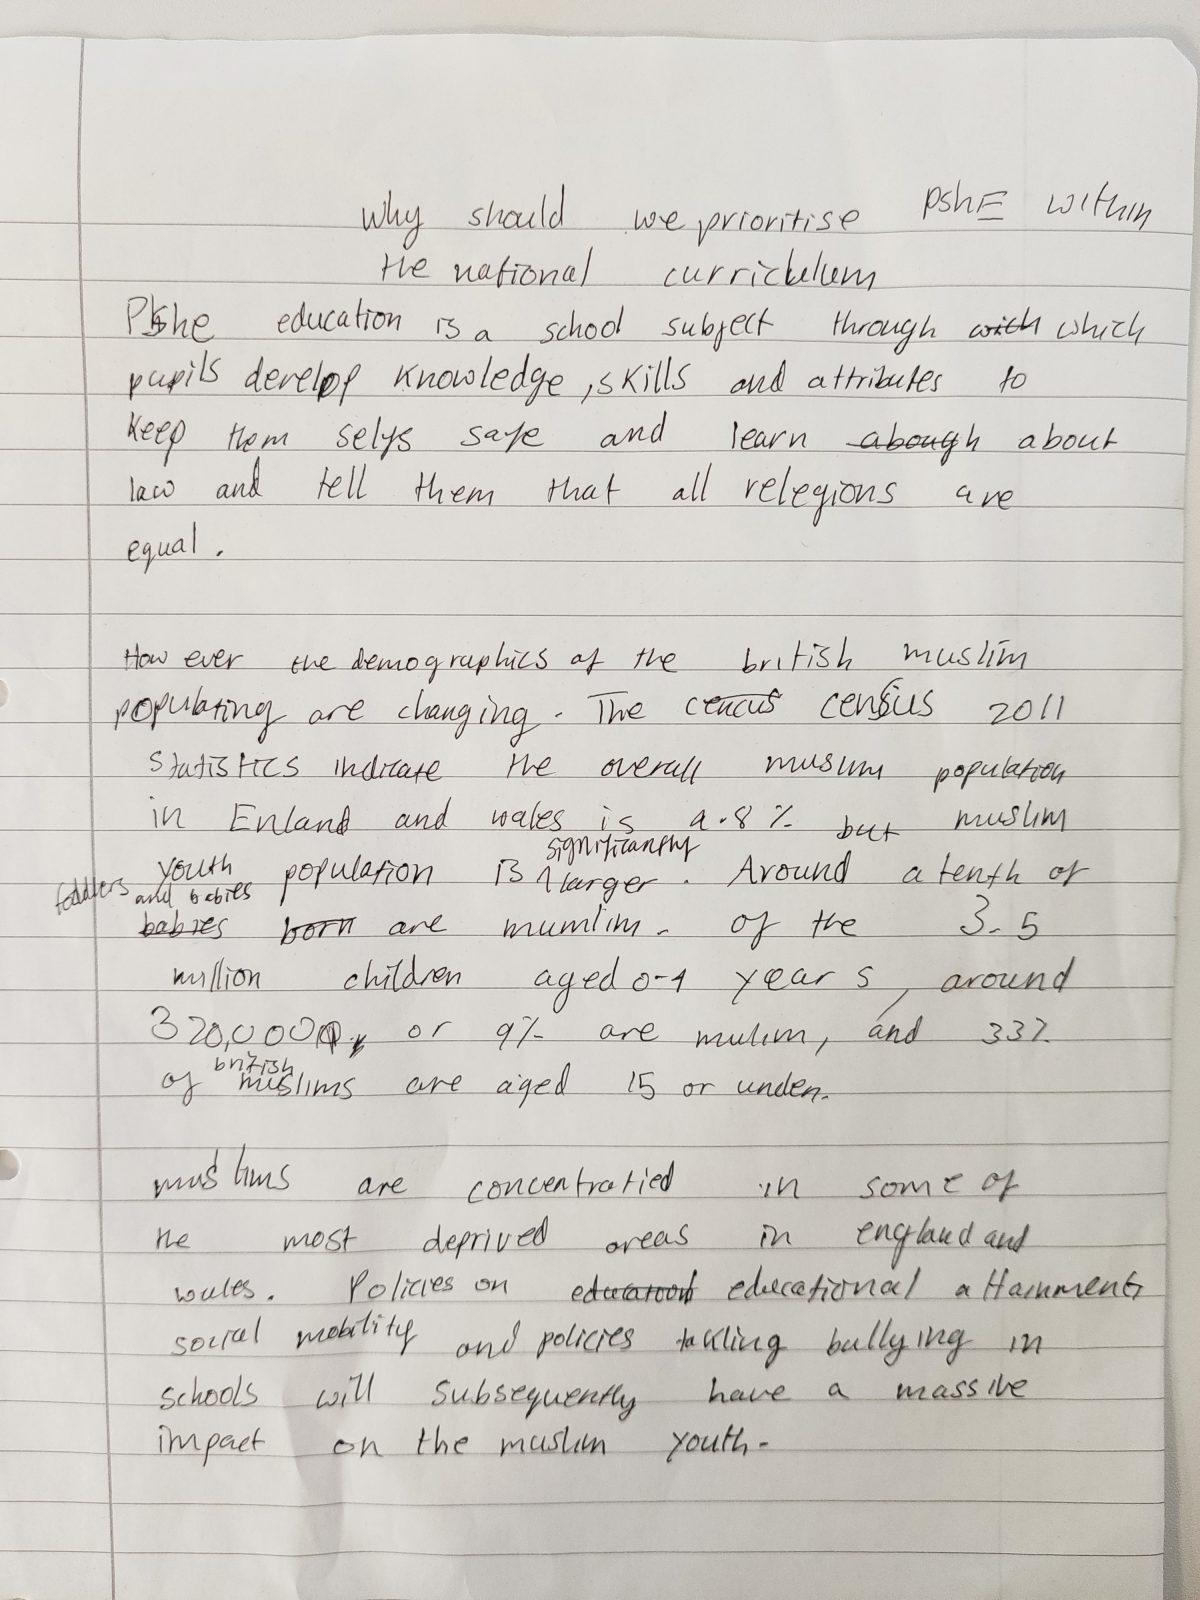 Why should we prioritise PshE within
the national curriculum
Pshe education is a school subject through with which
pupils develop knowledge, skills and attributes to
keep them selfs safe and learn abough about
law and tell them that all relegions are
equal.
How ever the demographics of the british muslim
populating are changing. The cencus census 2011
statistics indicate the overall muslim population
in Enland and wales is 4.8% but muslim
youth population is significantly larger. Around a tenth of
toddlers and babies
babies born are mumlim. of the 3.5
million children aged 0-4 years, around
320,000, or 9% are mulim, and 33%
of british muslims are aged 15 or under.
muslims are concentratied in some of
the most deprived areas in england and
wales. Policies on education educational attainment
social mobility and policies takling bullying in
schools will subsequently have a massive
impact on the muslim youth.